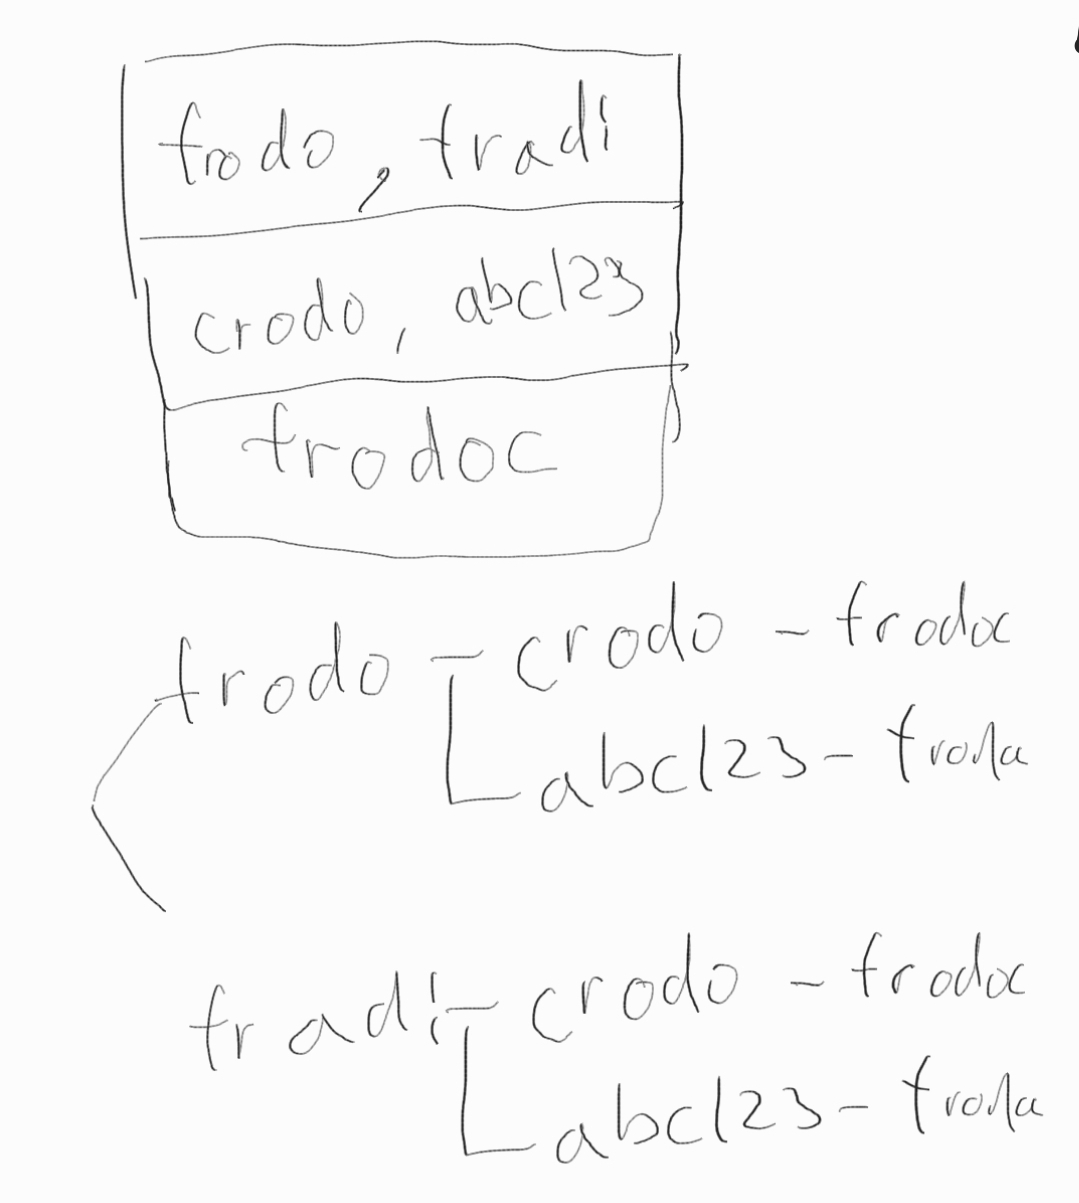 frodo, fradi
crodo, abc123
frodoc
frodo - crodo - frodoc
abc123 -
fradi - crodo - frodoc
abc123 -